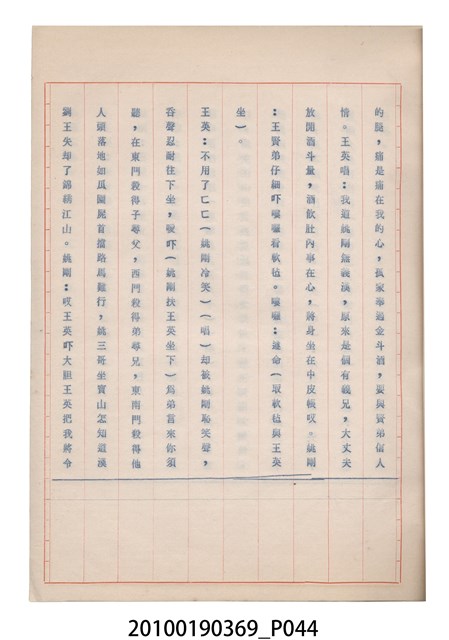 的腿,痛是痛在我的心,孤家奉過金斗酒,要與賢弟信人
情。王英唱:我道姚剛無義漢,原來是個有義兄,大丈夫
放開酒斗量,酒飲肚內事在心,將身坐在中皮帳叹。姚剛
:王賢弟仔細吓囉囉看軟毡。囉囉:遵命(取軟毡與王英
坐)。
王英:不用了亡亡(姚剛冷笑)(唱)却被姚剛恥笑聲,
吞聲忍耐往下坐,噯吓(姚剛扶王英坐下)為弟言來你須
聽,在東門殺得子尋父,西門殺得弟尋兄,東南門殺得他
人頭落地如瓜園屍首擋路馬難行,姚三哥坐寶山怎知道漢
劉王失却了錦綉江山。姚剛:叹王英吓大胆王英把我將令
20100190369_P044